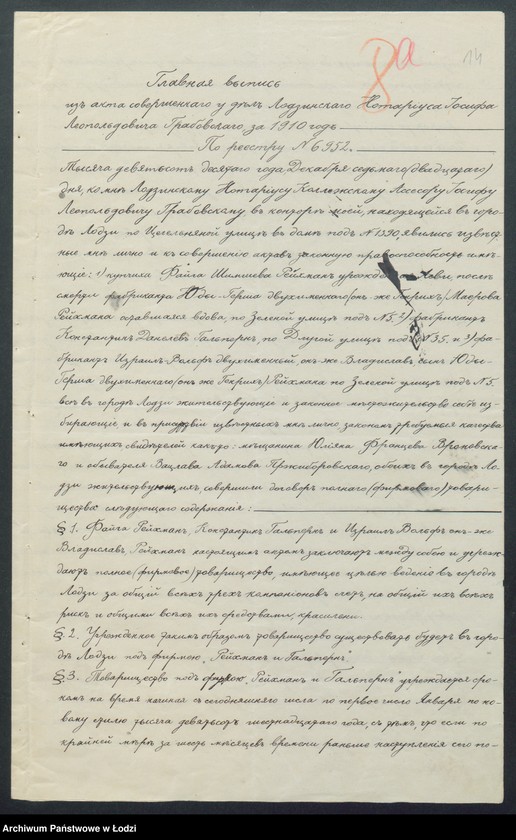 8а
14
Главная выпись
изъ акта совершеннаго у дѣлъ Лодзинскаго Нотаріуса Іосифа
Леопольдовича Грабовскаго, за 1910 годъ
По реестру N 6952.
Тысяча девятьсотъ десятаго года Декабря седьмаго (двадцатаго)
дня, ко мнѣ Лодзинскому Нотаріусу Коллежскому Ассесору Іосифу
Леопольдовичу Грабовскому въ контору мою, находящейся въ горо-
дѣ Лодзи по Цегельняной улицѣ въ домѣ подъ N 1390, явились извѣст-
ные мнѣ лично и къ совершенію актовъ законную правоспособность имѣ-
ющіе: 1) купчиха Файга Рейхманъ Леви, послѣ
смерти фабриканта Юды-Герша двухименнаго (онъ же Генрихъ) Маерова
Рейхмана оставшаяся вдова, по Зеленой улицѣ подъ N 5, 2) фабрикантъ
Константинъ Гальпернъ, по Другой улицѣ подъ N 35 и 3) фа-
брикантъ Израиль-Вольфъ двухименный, онъ-же Владиславъ, сынъ Юды-
Герша двухименнаго (онъ же Генрихъ) Рейхмана по Зеленой улицѣ подъ N 5,
всѣ въ городѣ Лодзи жительствующіе и законное мѣстожительство себѣ из-
бирающіе и въ присутствіи извѣстныхъ мнѣ лично закономъ требуемыя качества
имѣющихъ свидѣтелей какъ то: мѣщанина Юліяна Францева Вроновска-
го и обывателя Вацлава Адамова Пржиборовскаго, обоихъ въ городѣ Ло-
дзи жительствующихъ, совершили договоръ полнаго (фирмоваго) товари-
щества слѣдующаго содержанія:
§ 1. Файга Рейхманъ, Константинъ Гальпернъ и Израиль Вольфъ онъ-же
Владиславъ Рейхманъ настоящимъ актомъ заключаютъ между собою и учреж-
даютъ полное (фирмовое) товарищество, имѣющее цѣлью веденіе въ городѣ
Лодзи за общій всѣхъ трехъ компаніоновъ счетъ, на общій ихъ всѣхъ
рискъ и общими всѣхъ ихъ средствами, красильни.
§ 2. Учрежденное такимъ образомъ товарищество существовать будетъ въ горо-
дѣ Лодзи подъ фирмою „Рейхманъ и Гальпернъ"
§ 3. Товарищество подъ фирмою „Рейхманъ и Гальпернъ" учреждается сро-
комъ на время начиная съ сегодняшняго числа по первое Января по но-
вому стилю тысяча девятьсотъ шестнадцатаго года, съ тѣмъ, что если по
крайней мѣрѣ за шесть мѣсяцевъ времени раньше наступленія сего по-
Archiwum Państwowe w Łodzi